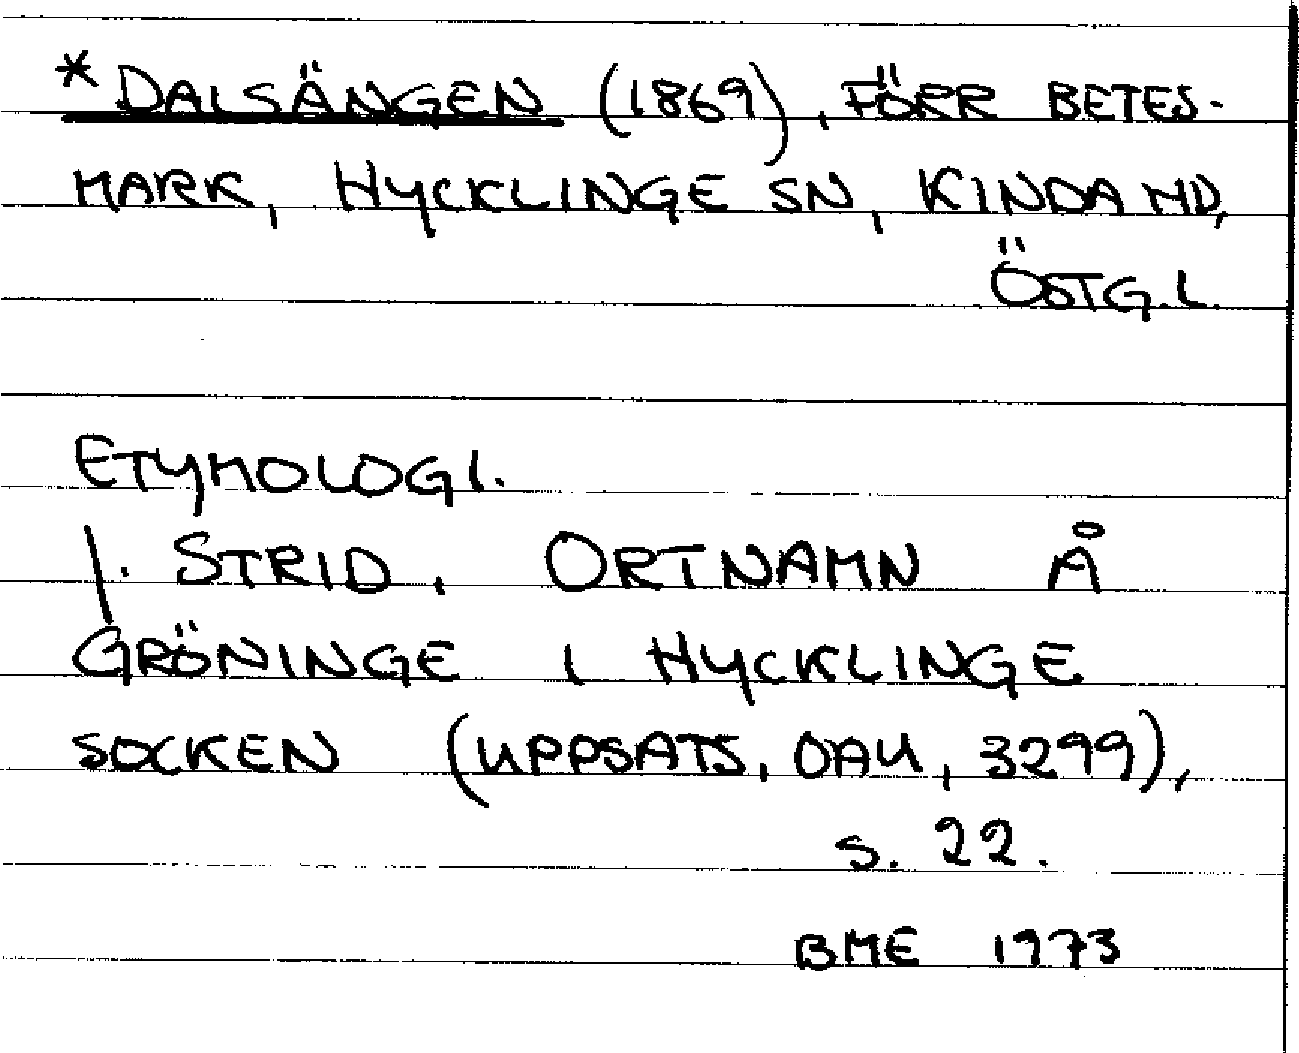 *DALSÄNGEN (1869), FÖRR BETES-
MARK, HYCKLINGE SN, KINDA HD,
ÖSTG.L.
ETYMOLOGI.
I. STRID, ORTNAMN Å
GRÖNINGE I HYCKLINGE
SOCKEN (UPPSATS, OAU, 3299),
S. 22.
BME 1973